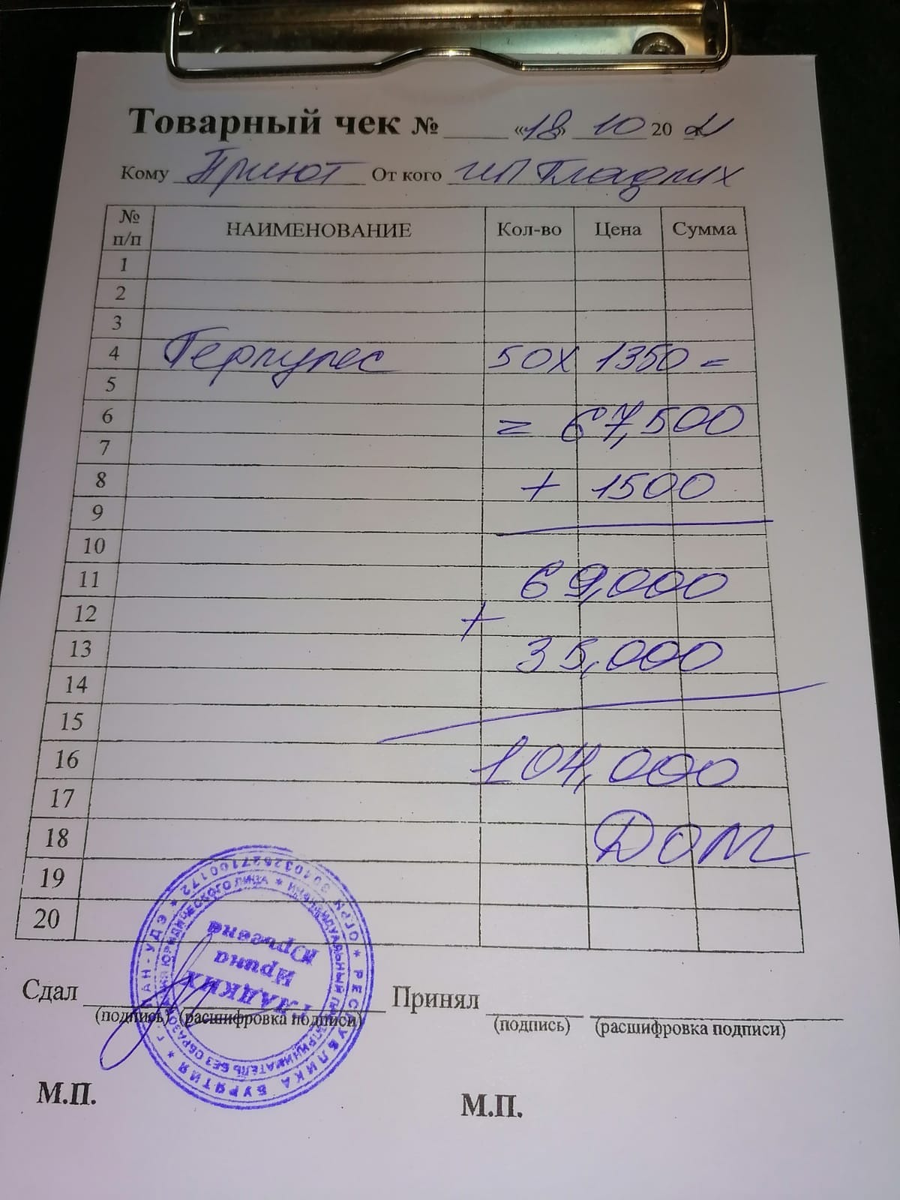 Товарный чек № «18» 10 20 21
Кому Приют От кого ИП Гладких
№ п/п НАИМЕНОВАНИЕ Кол-во Цена Сумма
1
2
3
4 Геркулес 50 х 1350 =
5
6 = 67,500
7
8 + 1500
9
10
11 69,000
12 +
13 35,000
14
15
16 104,000
17
18 Дом
19
20
Сдал Принял
(подпись) (расшифровка подписи) (подпись) (расшифровка подписи)
М.П. М.П.
РЕСПУБЛИКА БУРЯТИЯ * г. УЛАН-УДЭ *
ИНДИВИДУАЛЬНЫЙ ПРЕДПРИНИМАТЕЛЬ БЕЗ ОБРАЗОВАНИЯ ЮРИДИЧЕСКОГО ЛИЦА *
ГЛАДКИХ
Ирина
Юрьевна